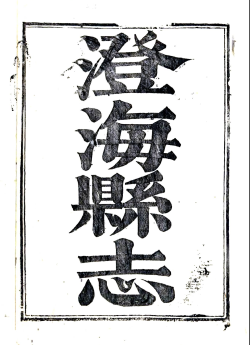 澄海縣志